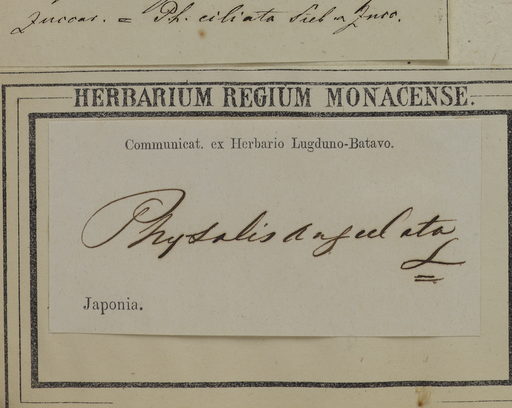 Zuccar. = Ph. ciliata Sieb & Zucc.
HERBARIUM REGIUM MONACENSE.
Communicat. ex Herbario Lugduno-Batavo.
Physalis angulata
L
Japonia.